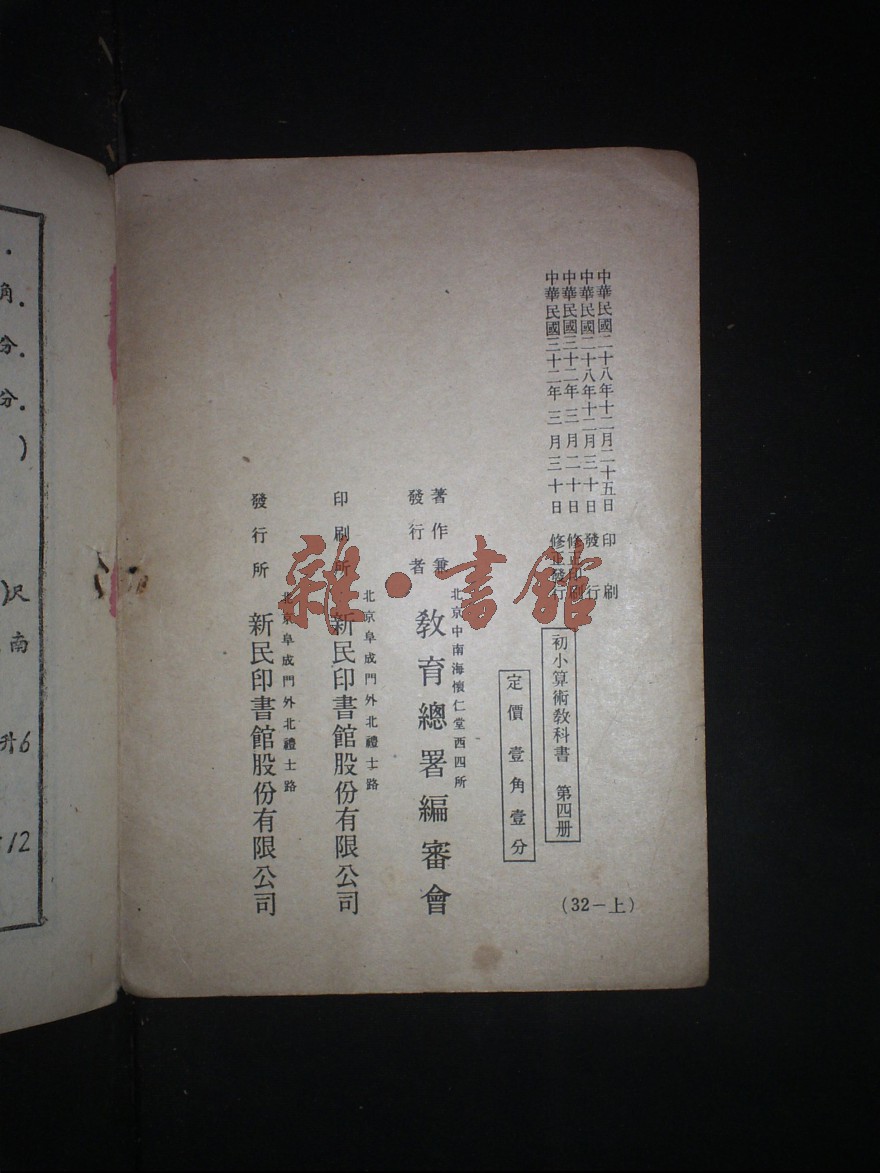 中華民國二十八年十二月二十五日 印刷
中華民國二十八年十二月三十日 發行
中華民國三十二年 三月二十日 修正印刷
中華民國三十二年 三月三十日 修正發行
初小算術教科書 第四册
定價壹角壹分
(32—上)
著作兼
發行者
北京中南海懷仁堂西四所
教育總署編審會
印刷所
北京阜成門外北禮士路
新民印書館股份有限公司
發行所
北京阜成門外北禮士路
新民印書館股份有限公司
雜·書館
角.
分.
分.
)
尺
南
升6
12